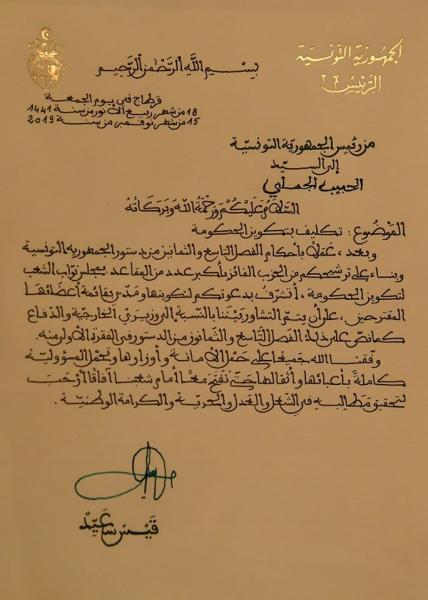 الجمهورية التونسية
الرئيس
بسم الله الرحمن الرحيم
قرطاج في يوم الجمعة
18 من شهر ربيع الأنور من سنة 1441
15 من شهر نوفمبر من سنة 2019
من رئيس الجمهورية التونسية
إلى السيد
الحبيب الجملي
السلام عليكم ورحمة الله وبركاته
الموضوع : تكليف بتكوين الحكومة
وبعد، عملا بأحكام الفصل التاسع والثمانين من دستور الجمهورية التونسية
وبناء على ترشيحكم من الحزب الفائز بأكبر عدد من المقاعد بمجلس نواب الشعب
لتكوين الحكومة، أتشرف بدعوتكم لتكوينها ومدي بقائمة أعضائها
المقترحين، على أن يتم التشاور بيننا بالنسبة إلى وزيري الخارجية والدفاع
كما نص على ذلك الفصل التاسع والثمانون من الدستور في الفقرة الأولى منه.
وفقنا الله جميعا على حمل الأمانة وأوزارها وتحمل المسؤولية
كاملة بأعبائها وأثقالها حتى نفتح معا أمام شعبنا آفاقا أرحب
لتحقيق مطالبه في الشغل والعدل والحرية والكرامة الوطنية.
قيس سعيد